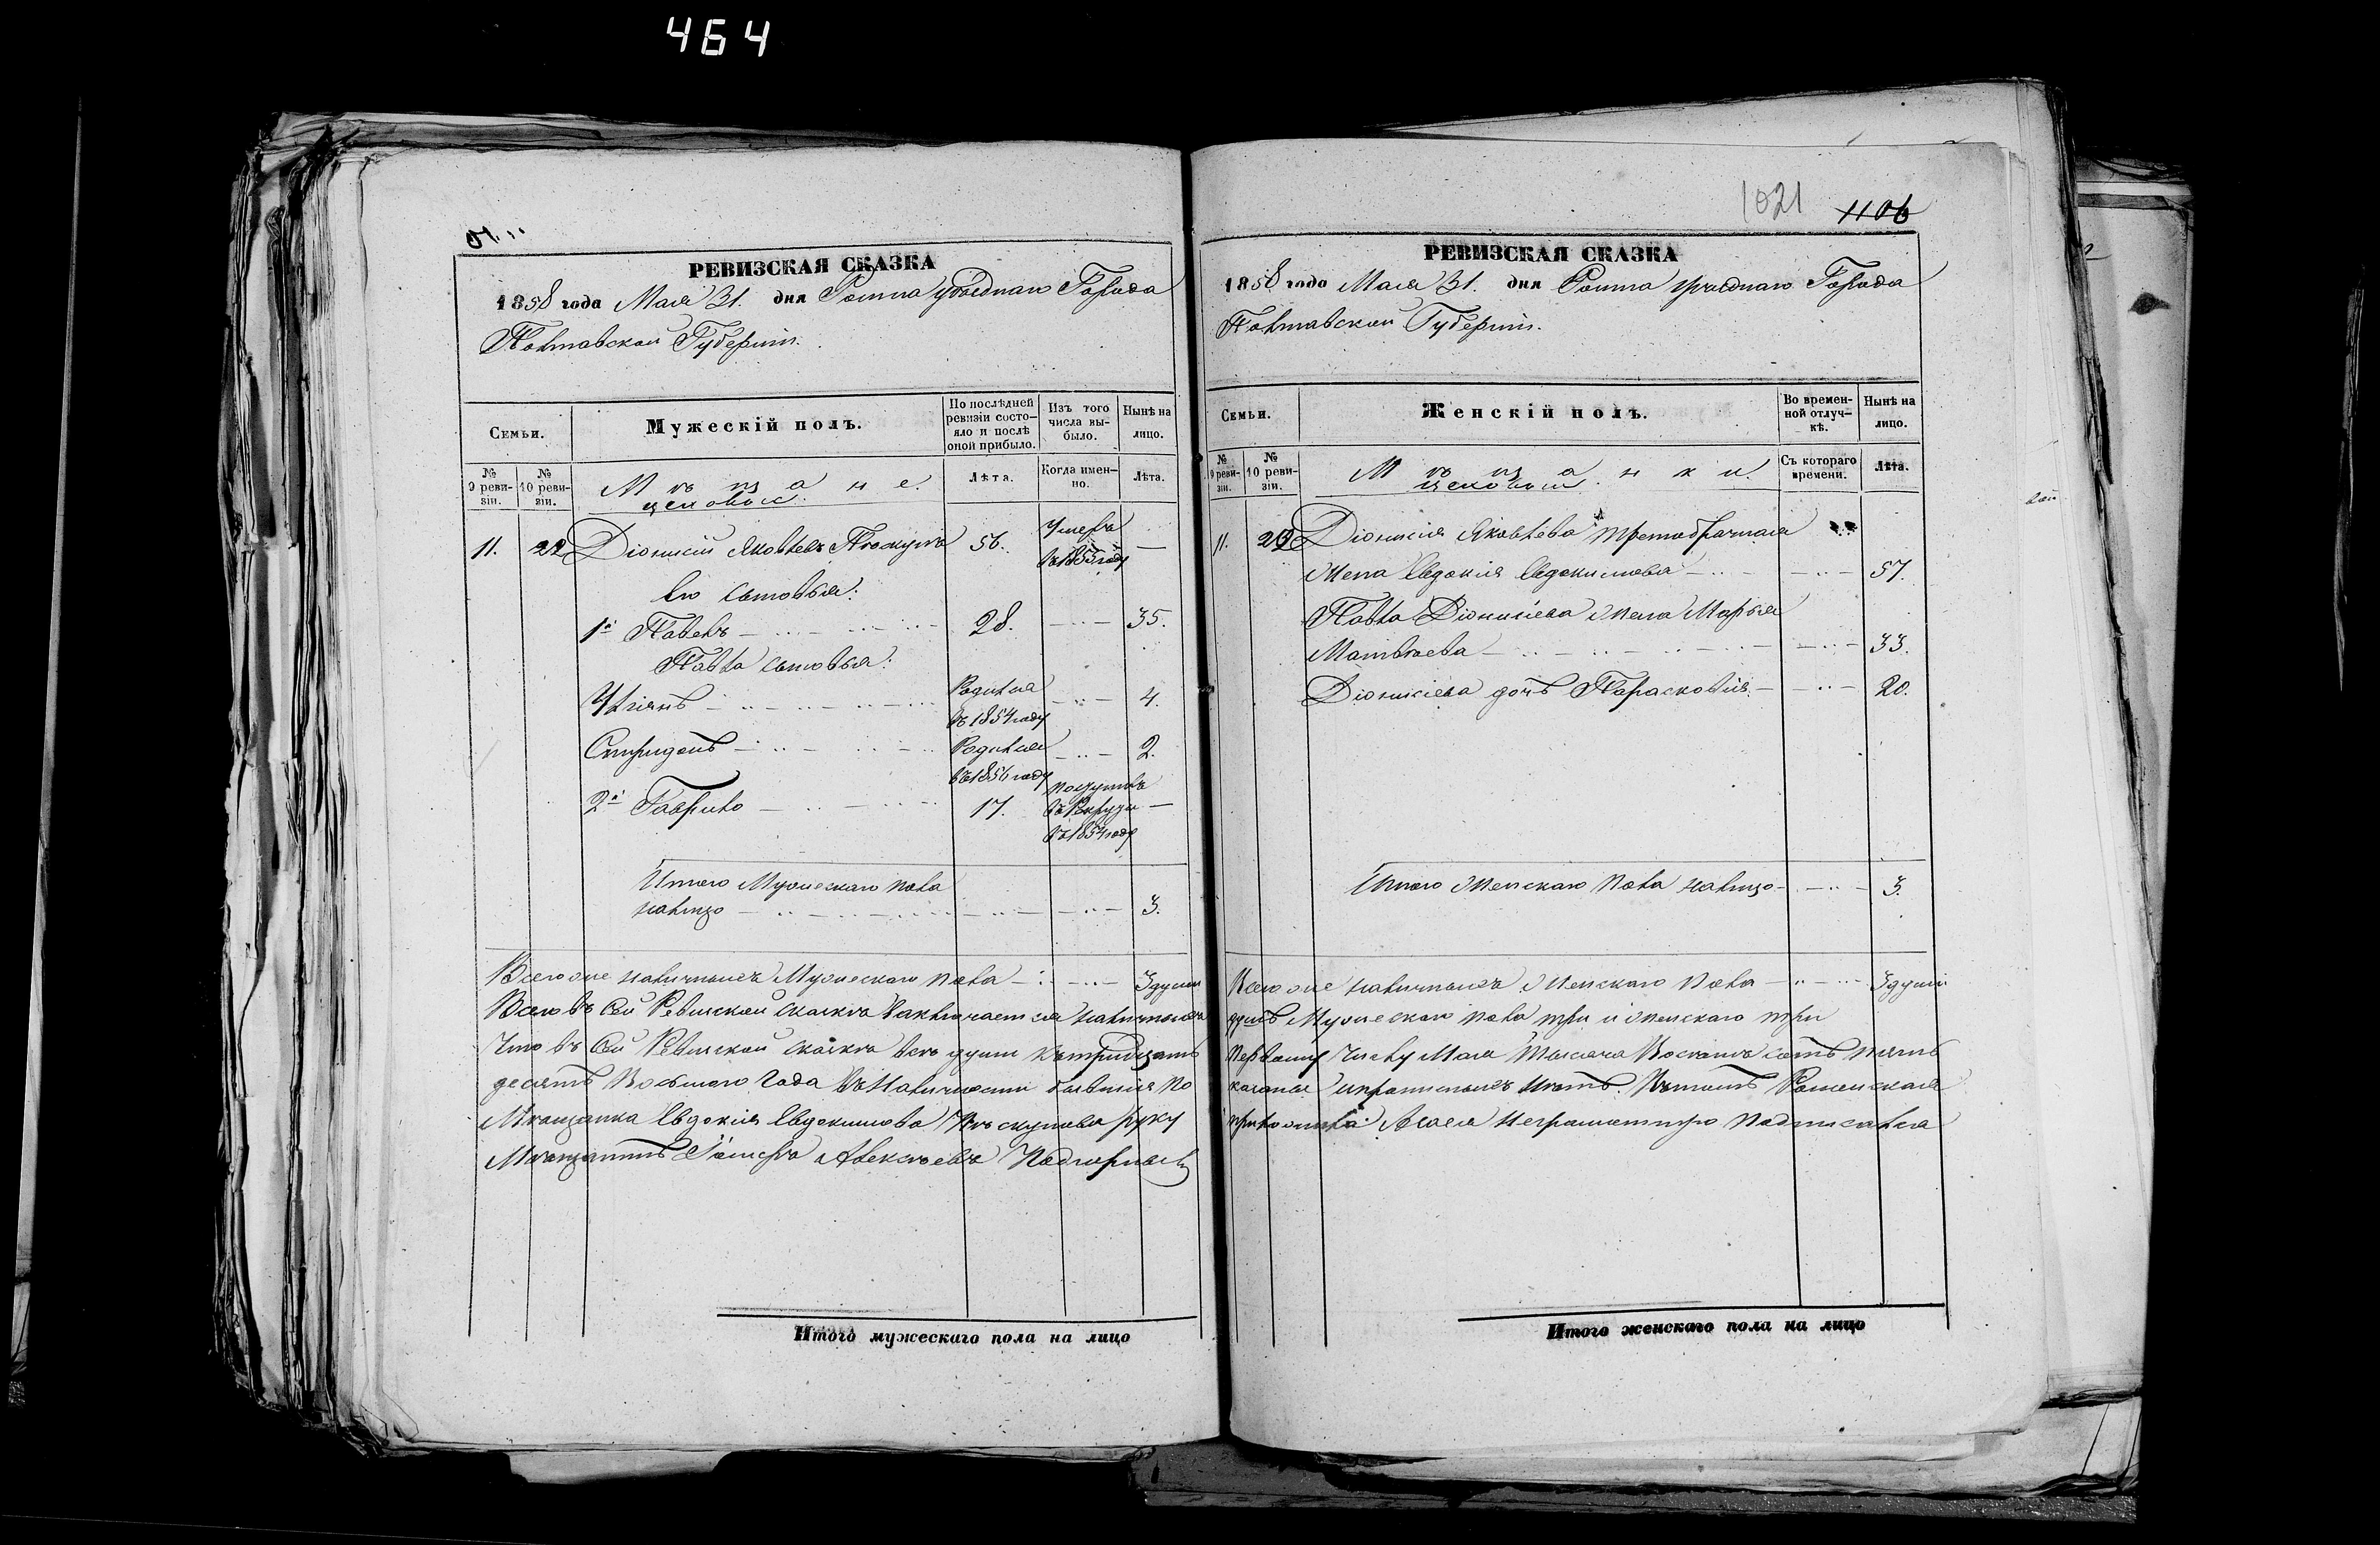 464
РЕВИЗСКАЯ СКАЗКА
1858 года Мая 31. дня Ромна уѣзднаго Города
Полтавской Губерніи.
Семьи.
Мужескій полъ.
По послѣдней ревизіи состо-яло и послѣ оной прибыло.
Изъ того числа вы-было.
Нынѣ на лицо.
№ 9 реви-зіи.
№ 10 реви-зіи.
Мѣщане.
цеховые.
Лѣта.
Когда имен-но.
Лѣта.
11. 22 Діонисій Яковлевъ 56. Умеръ въ 1855 году —
Его сыновья:
1й Павелъ 28. 35.
Павла сыновья:
Уліянъ Родился въ 1854 году 4.
Спиридонъ Родился въ 1856 году 2.
2й Гаврило 17. поступилъ въ Рекруты въ 1854 году —
Итого Мужескаго пола
налицо 3.
Всего же наличныхъ Мужескаго пола 3 души
Всего въ сей Ревизской сказкѣ заключается наличныхъ
Что въ сей Ревизской сказкѣ всѣ души къ
десятъ Восьмого Года въ Наличности бывшія по
Мѣщанка Евдокія Евдокимова руку
Мѣщанинъ Алексѣевъ
Итого мужескаго пола на лицо
1021 1106
РЕВИЗСКАЯ СКАЗКА
1858 года Мая 31. дня Ромна уѣзднаго Города
Полтавской Губерніи.
Семьи.
Женскій полъ.
Во времен-ной отлуч-кѣ.
Нынѣ на лицо.
№ 9 реви-зіи.
№ 10 реви-зіи.
Мѣщанки.
цеховыи.
Съ котораго времени.
Лѣта.
11. Діонисія Яковлева третобрачная
жена Евдокія Евдокимова 57.
Павла Діонисіева жена Марья
Матвѣева 33.
Діонисіева дочь Парасковія 20.
Итого Женскаго пола налицо 3.
Всего же наличныхъ Женскаго пола 3 души
душъ Мужескаго пола три и женскаго три
первому числу Мая тысяча Восемъ сотъ пять
Роменская
неграмотную подписался
Итого женскаго пола на лицо